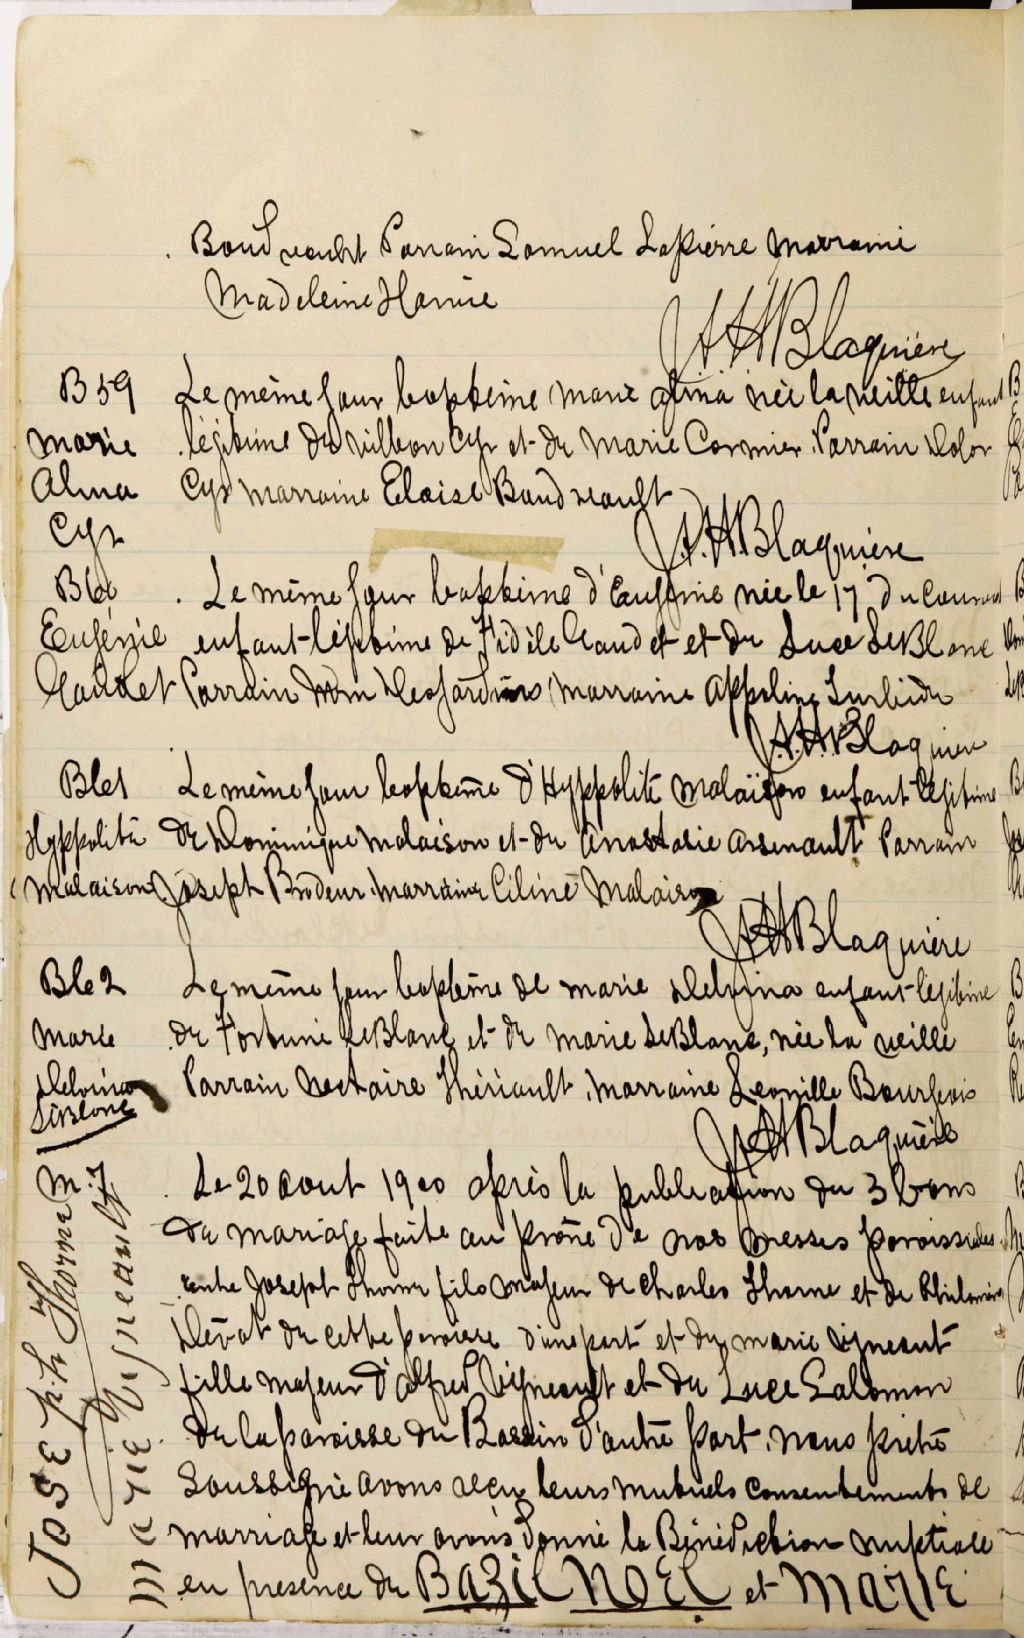 Boudreault Parrain Samuel Lapierre Marraine
Madeleine Harvie
JAHBlaquière
B 59
Marie
Alma
Cyr
Le même jour baptême Marie Alma née la veille enfant
légitime de Wilbon Cyr et de Marie Cormier Parrain Dolor
Cyr marraine Eloise Boudreault
J.A.H.Blaquière
B60
Eugénie
Gaudet
Le même jour baptême d'Eugénie née le 17 du courant
enfant légitime de Fidèle Gaudet et de Luce LeBlanc
Parrain Wm Desjardins Marraine Appoline Turbide
J.A.H.Blaquière
B61
Hyppolite
Malaison
Le même jour baptême d'Hyppolite Malaison enfant légitime
de Dominique Malaison et de Anastasie Arsenault Parrain
Joseph Brodeur Marraine Céline Malaison
JAHBlaquière
B62
Marie
Delvina
LeBlanc
Le même jour baptême de Marie Delvina enfant légitime
de Fortuné LeBlanc et de Marie LeBlanc, née la veille
Parrain Nectaire Thériault, marraine Léonille Bourgeois
JAHBlaquière
M.7
Joseph Thorne
Marie Vigneault
Le 20 aout 1900 après la publication de 3 bans
de mariage faite au prône de nos messes paroissiales
entre Joseph Thorne fils majeur de Charles Thorne et de Philomène
de cette paroisse d'une part et de Marie Vigneault
fille majeur d'Alfred Vigneault et de Luce Salomon
de la paroisse du Bassin d'autre part, nous prêtre
soussigné avons reçu leurs mutuels consentements de
marriage et leur avons donné la Bénédiction nuptiale
en presence de BaziL NoEL et Marie